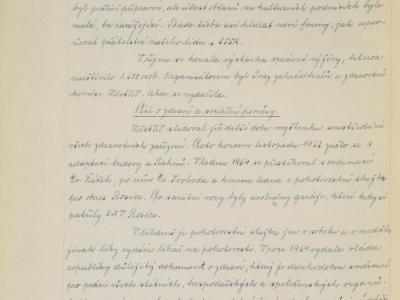 byl pečlivě připraven, ale účast občanů na kulturních podnicích byla
malá, ba zarážející. Bude třeba asi hledat nové formy, jak upev-
ňovat přátelství našeho lidu s SSSR.
V říjnu se konala výstavka správné výživy, kterou
navštívilo 1.600 osob. Organisátorem byl Svaz zahrádkářů a zdravotní
komise MěstNV. Akce se vydařila.
Péče o zdraví a sociální poměry.
MěstNV sledoval již delší dobu myšlenku soustředění
všech zdravotních zařízení. Proto koncem listopadu 1963 začlo se s
adaptací budovy u Rathů. V lednu 1964 se přestěhoval s ordinací
Dr. Fáček, po něm Dr. Svoboda a koncem ledna i pohotovostní služba
pro okres Rosice. Pro sanitní vozy byly uvolněny garáže, které kdysi
patřily ONV Rosice.
U lékařů je pohotovostní služba jen v sobotu a v neděli,
jinak léky vydává lékař na pohotovosti. V roce 1964 vydala vláda
republiky důležitý dokument o zdraví, který je dlouhodobou směrnicí
pro práci všech státních, hospodářských a společenských orgánů.